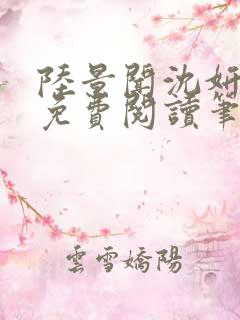 陸景聞沈妍
免費閱讀筆
雲雪嬌陽